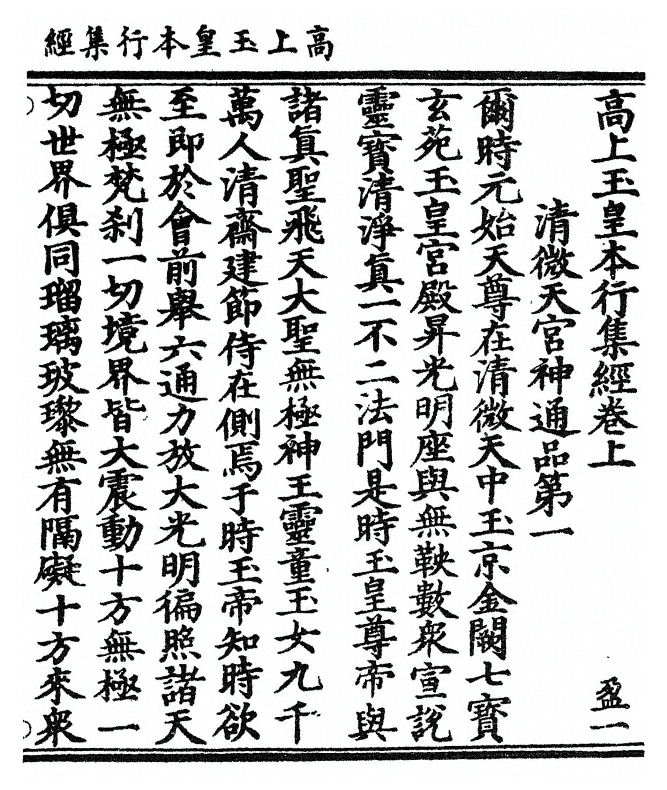 高上玉皇本行集經
高上玉皇本行集經卷上
盈一
清微天宮神通品第一
爾時元始天尊在清微天中玉京金闕七寶
玄苑玉皇宮殿昇光明座與無鞅數衆宣說
靈寶清淨眞一不二法門是時玉皇尊帝與
諸眞聖飛天大聖無極神王靈童玉女九千
萬人清齋建節侍在側焉于時玉帝知時欲
至即於會前舉六通力放大光明徧照諸天
無極梵刹一切境界皆大震動十方無極一
切世界俱同瑠璃玻瓈無有隔礙十方來衆